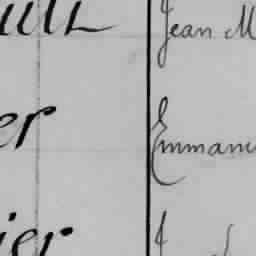 ault Jean M
er Emmanu
ier J